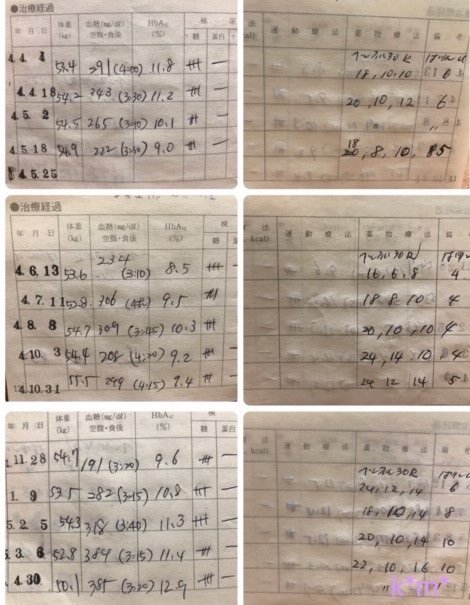 ●治療経過
年 月 日 体重(kg) 血糖(mg/dℓ)空腹・食後 HbA1c(%) 検 尿 糖 蛋白
4.4. 4 53.4 291 (4:00) 11.8 +++ −
4.4.18 54.2 343 (3:30) 11.2 +++ −
4.5. 2 54.5 265 (3:40) 10.1 −
4.5.18 54.9 222 (3:30) 9.0 −
4.5.25
法 kcal) 運 動 療 法 薬 物 療 法 備 考
30R
18, 10, 10 6
20, 10, 12 6
18 20, 8, 10, 8
●治療経過
年 月 日 体重(kg) 血糖(mg/dℓ)空腹・食後 HbA1c(%) 検 糖
4.6.13 53.6 234 (3:10) 8.5 +++ −
4.7.11 306 9.5 −
4.8. 8 54.7 309 (3:45) 10.3 +++ −
4.10. 3 54.4 208 (4:20) 9.2 −
4.10.31 (4:15) −
法 kcal) 運 動 療 法 薬 物 療 法 備
30R
16, 6, 8 4
18 8 10 4
20, 10, 10 4
24, 14 10 4
24 12 14 5
年 月 日 体重(kg) 血糖(mg/dℓ)空腹・食後 HbA1c(%) 検 糖 蛋白
.11.28 54.7 191 (3:20) 9.6 −
1. 9 53.5 282 (3:15) 10.8 +++ −
5.2. 5 54.3 318 (3:40) 11.3 +++ −
5.3. 6 52.8 384 (3:15) 11.4 −
4.30 385 (3:20) 12.9 +++ −
法 kcal) 運 動 療 法 薬 物 療 法 備
30R
24, 12, 14 6
18, 10, 14 8
20, 10, 14 10
22, 10, 16 10
〃 10